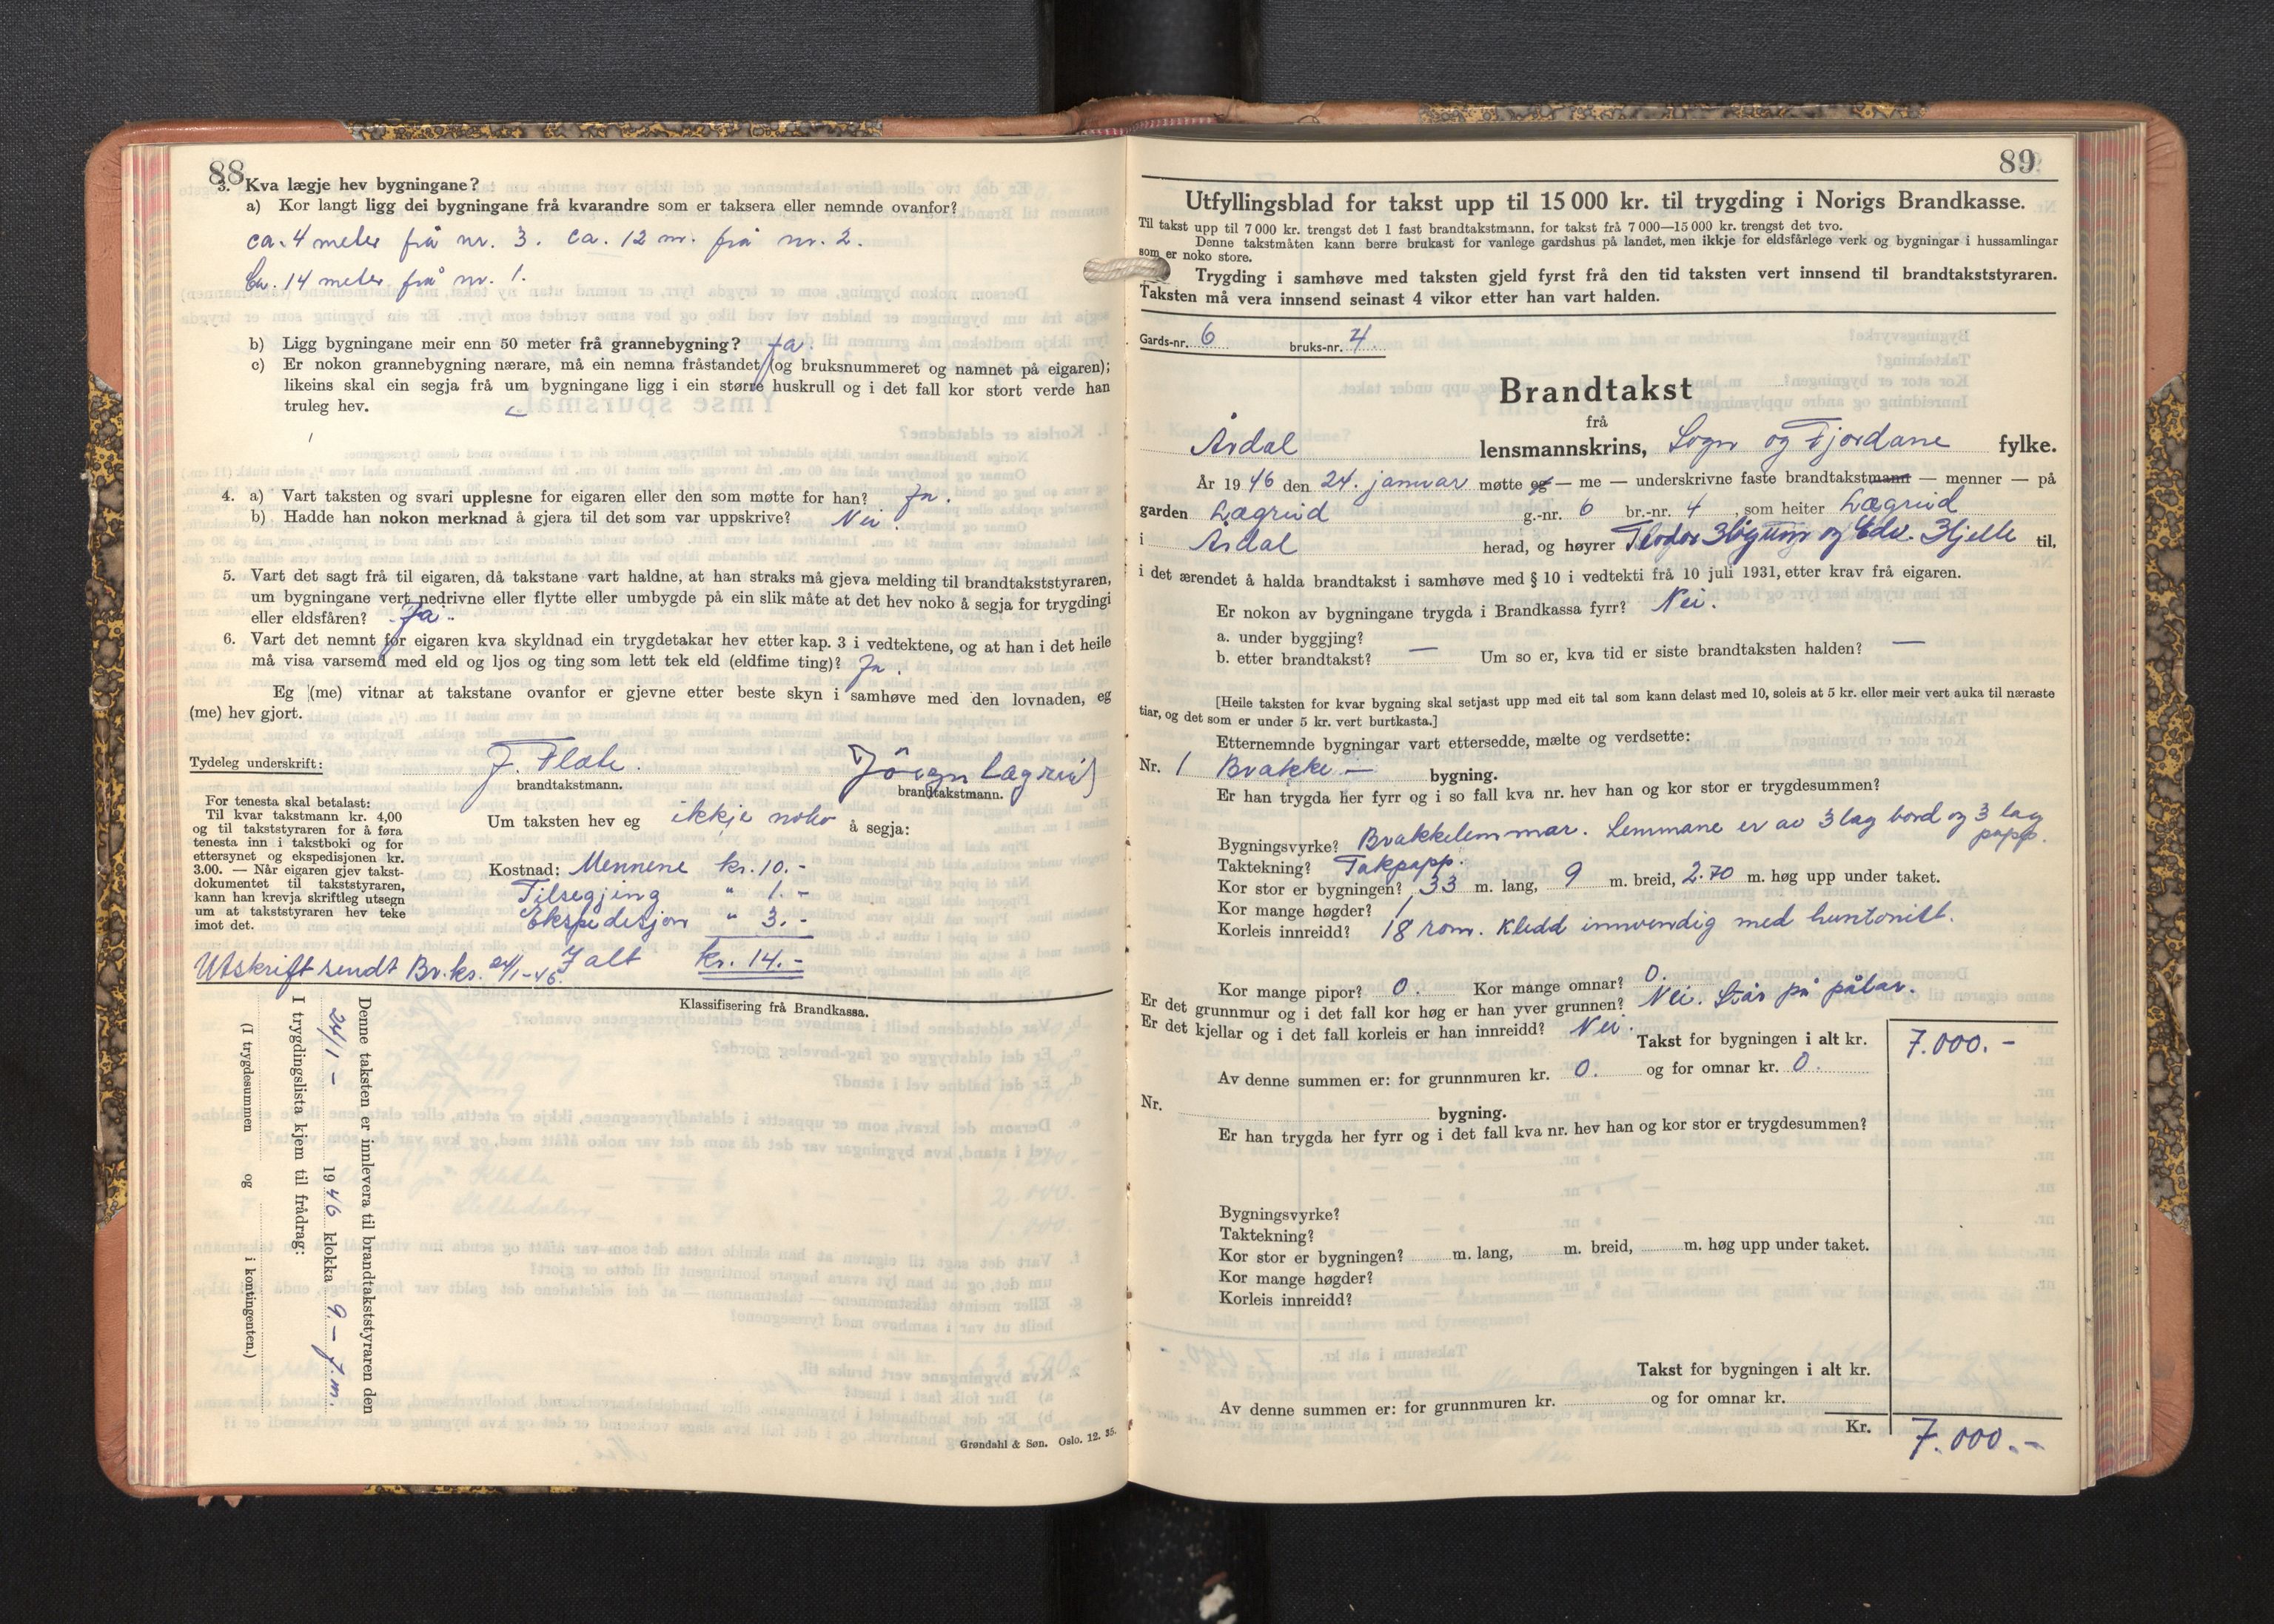 88
3. Kva lægje hev bygningane?
a) Kor langt ligg dei bygningane frå kvarandre som er taksera eller nemnde ovanfor?
ca. 4 meter frå nr. 3. ca. 12 m. frå nr. 2.
Ca. 14 meter frå nr. 1.
b) Ligg bygningane meir enn 50 meter frå grannebygning? Ja.
c) Er nokon grannebygning nærare, må ein nemna fråstandet (og bruksnummeret og namnet på eigaren);
likeins skal ein segja frå um bygningane ligg i ein større huskrull og i det fall kor stort verde han
truleg hev.
4. a) Vart taksten og svari upplesne for eigaren eller den som møtte for han? Ja.
b) Hadde han nokon merknad å gjera til det som var uppskrive? Nei.
5. Vart det sagt frå til eigaren, då takstane vart haldne, at han straks må gjeva melding til brandtakststyraren,
um bygningane vert nedrivne eller flytte eller umbygde på ein slik måte at det hev noko å segja for trygdingi
eller eldsfåren? Ja.
6. Vart det nemnt for eigaren kva skyldnad ein trygdetakar hev etter kap. 3 i vedtektene, og at han i det heile
må visa varsemd med eld og ljos og ting som lett tek eld (eldfime ting)? Ja.
Eg (me) vitnar at takstane ovanfor er gjevne etter beste skyn i samhøve med den lovnaden, eg
(me) hev gjort.
Tydeleg underskrift: J. Flate. Jörgn Lægreid
brandtakstmann. brandtakstmann.
For tenesta skal betalast:
Til kvar takstmann kr. 4,00
og til takststyraren for å føra
tenesta inn i takstboki og for
ettersynet og ekspedisjonen kr.
3.00. — Når eigaren gjev takst-
dokumentet til takststyraren,
kann han krevja skriftleg utsegn
um at takststyraren hev teke
imot det.
Um taksten hev eg ikkje noko å segja:
Kostnad: Mennene kr. 10.-
Tilsegjing " 1.-
Ekspedisjon " 3.-
I alt kr. 14.-
Utskrift sendt Br.ks. 24/1-46.
Klassifisering frå Brandkassa.
Denne taksten er innlevera til brandtakststyraren den
24/1 - 1946 klokka 9.- f.m.
I trygdingslista kjem til frådrag:
(I trygdesummen og i kontingenten.)
Grøndahl & Søn. Oslo. 12. 35.
89
Utfyllingsblad for takst upp til 15 000 kr. til trygding i Norigs Brandkasse.
Til takst upp til 7 000 kr. trengst det 1 fast brandtakstmann, for takst frå 7 000—15 000 kr. trengst det tvo.
Denne takstmåten kann berre brukast for vanlege gardshus på landet, men ikkje for eldsfårlege verk og bygningar i hussamlingar
som er noko store.
Trygding i samhøve med taksten gjeld fyrst frå den tid taksten vert innsend til brandtakststyraren.
Taksten må vera innsend seinast 4 vikor etter han vart halden.
Gards-nr. 6 bruks-nr. 4.
Brandtakst
frå
Årdal lensmannskrins, Sogn og Fjordane fylke.
År 1946 den 24. januar møtte eg — me — underskrivne faste brandtakstmann — menner — på
garden Lægreid g.-nr. 6 br.-nr. 4, som heiter Lægreid
i Årdal herad, og høyrer og Edv. Hjelle til,
i det ærendet å halda brandtakst i samhøve med § 10 i vedtekti frå 10 juli 1931, etter krav frå eigaren.
Er nokon av bygningane trygda i Brandkassa fyrr? Nei.
a. under byggjing?
b. etter brandtakst? — Um so er, kva tid er siste brandtaksten halden? —
[Heile taksten for kvar bygning skal setjast upp med eit tal som kann delast med 10, soleis at 5 kr. eller meir vert auka til næraste
tiar, og det som er under 5 kr. vert burtkasta.]
Etternemnde bygningar vart ettersedde, mælte og verdsette:
Nr. 1 Brakke - bygning.
Er han trygda her fyrr og i so fall kva nr. hev han og kor stor er trygdesummen?
Bygningsvyrke? Brakkelemmar. Lemmane er av 3 lag bord og 3 lag papp.
Taktekning? Takpapp.
Kor stor er bygningen? 33 m. lang, 9 m. breid, 2.70 m. høg upp under taket.
Kor mange høgder? 1
Korleis innreidd? 18 rom. Kledd innvendig med huntonitt.
Kor mange pipor? 0. Kor mange omnar? 0.
Er det grunnmur og i det fall kor høg er han yver grunnen? Nei. Står på pålar.
Er det kjellar og i det fall korleis er han innreidd? Nei.
Takst for bygningen i alt kr. 7.000.-
Av denne summen er: for grunnmuren kr. 0. og for omnar kr. 0.
Nr. bygning.
Er han trygda her fyrr og i det fall kva nr. hev han og kor stor er trygdesummen?
Bygningsvyrke?
Taktekning?
Kor stor er bygningen? m. lang, m. breid, m. høg upp under taket.
Kor mange høgder?
Korleis innreidd?
Takst for bygningen i alt kr.
Av denne summen er: for grunnmuren kr. og for omnar kr.
Kr. 7.000.-